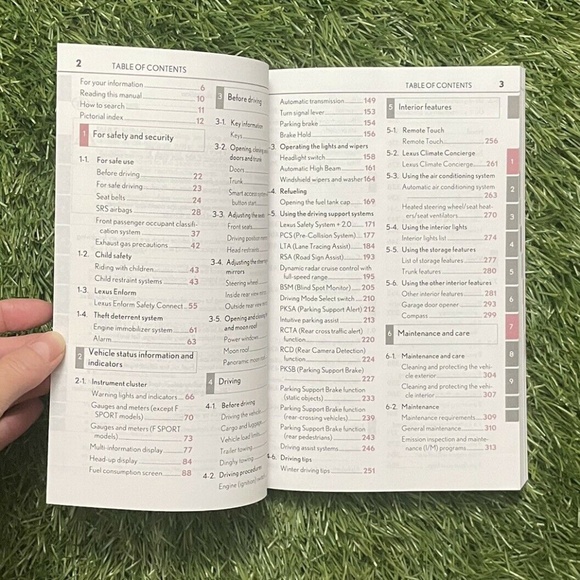 2
TABLE OF CONTENTS
For your information 6
Reading this manual 10
How to search 11
Pictorial index 12
1 For safety and security
1-1. For safe use
Before driving 22
For safe driving 23
Seat belts 24
SRS airbags 28
Front passenger occupant classifi-
cation system 37
Exhaust gas precautions 42
1-2. Child safety
Riding with children 43
Child restraint systems 43
1-3. Lexus Enform
Lexus Enform Safety Connect 55
1-4. Theft deterrent system
Engine immobilizer system 61
Alarm 63
2 Vehicle status information and
indicators
2-1. Instrument cluster
Warning lights and indicators 66
Gauges and meters (except F
SPORT models) 70
Gauges and meters (F SPORT
models) 73
Multi-information display 77
Head-up display 84
Fuel consumption screen 88
3 Before driving
3-1. Key information
Keys
3-2. Opening, closing
doors and trunk
Doors
Trunk
Smart access system
button start
3-3. Adjusting the seats
Front seats
Driving position
Head restraints
3-4. Adjusting the steering
mirrors
Steering wheel
Inside rear view
Outside rear view
3-5. Opening and closing
and moon roof
Power windows
Moon roof
Panoramic moon
4 Driving
4-1. Before driving
Driving the vehicle
Cargo and luggage
Vehicle load limits
Trailer towing
Dinghy towing
4-2. Driving procedures
Engine (ignition)
TABLE OF CONTENTS
3
Automatic transmission 149
Turn signal lever 153
Parking brake 154
Brake Hold 156
3. Operating the lights and wipers
Headlight switch 158
Automatic High Beam 161
Windshield wipers and washer 164
4. Refueling
Opening the fuel tank cap 169
5. Using the driving support systems
Lexus Safety System + 2.0 171
PCS (Pre-Collision System) 177
LTA (Lane Tracing Assist) 184
RSA (Road Sign Assist) 193
Dynamic radar cruise control with
full-speed range 195
BSM (Blind Spot Monitor) 205
Driving Mode Select switch 210
PKSA (Parking Support Alert) 212
Intuitive parking assist 213
RCTA (Rear cross traffic alert)
function 220
RCD (Rear Camera Detection)
function 224
PKSB (Parking Support Brake)
227
Parking Support Brake function
(static objects) 233
Parking Support Brake function
(rear-crossing vehicles) 239
Parking Support Brake function
(rear pedestrians) 243
Driving assist systems 246
4-6. Driving tips
Winter driving tips 251
5 Interior features
5-1. Remote Touch
Remote Touch 256
5-2. Lexus Climate Concierge
Lexus Climate Concierge 261
5-3. Using the air conditioning system
Automatic air conditioning system
263
Heated steering wheel/seat heat-
ers/seat ventilators 270
5-4. Using the interior lights
Interior lights list 274
5-5. Using the storage features
List of storage features 277
Trunk features 280
5-6. Using the other interior features
Other interior features 281
Garage door opener 293
Compass 299
6 Maintenance and care
6-1. Maintenance and care
Cleaning and protecting the vehi-
cle exterior 304
Cleaning and protecting the vehi-
cle interior 307
6-2. Maintenance
Maintenance requirements 309
General maintenance 310
Emission inspection and mainte-
nance (I/M) programs 313
1
2
3
4
5
6
7
8
9